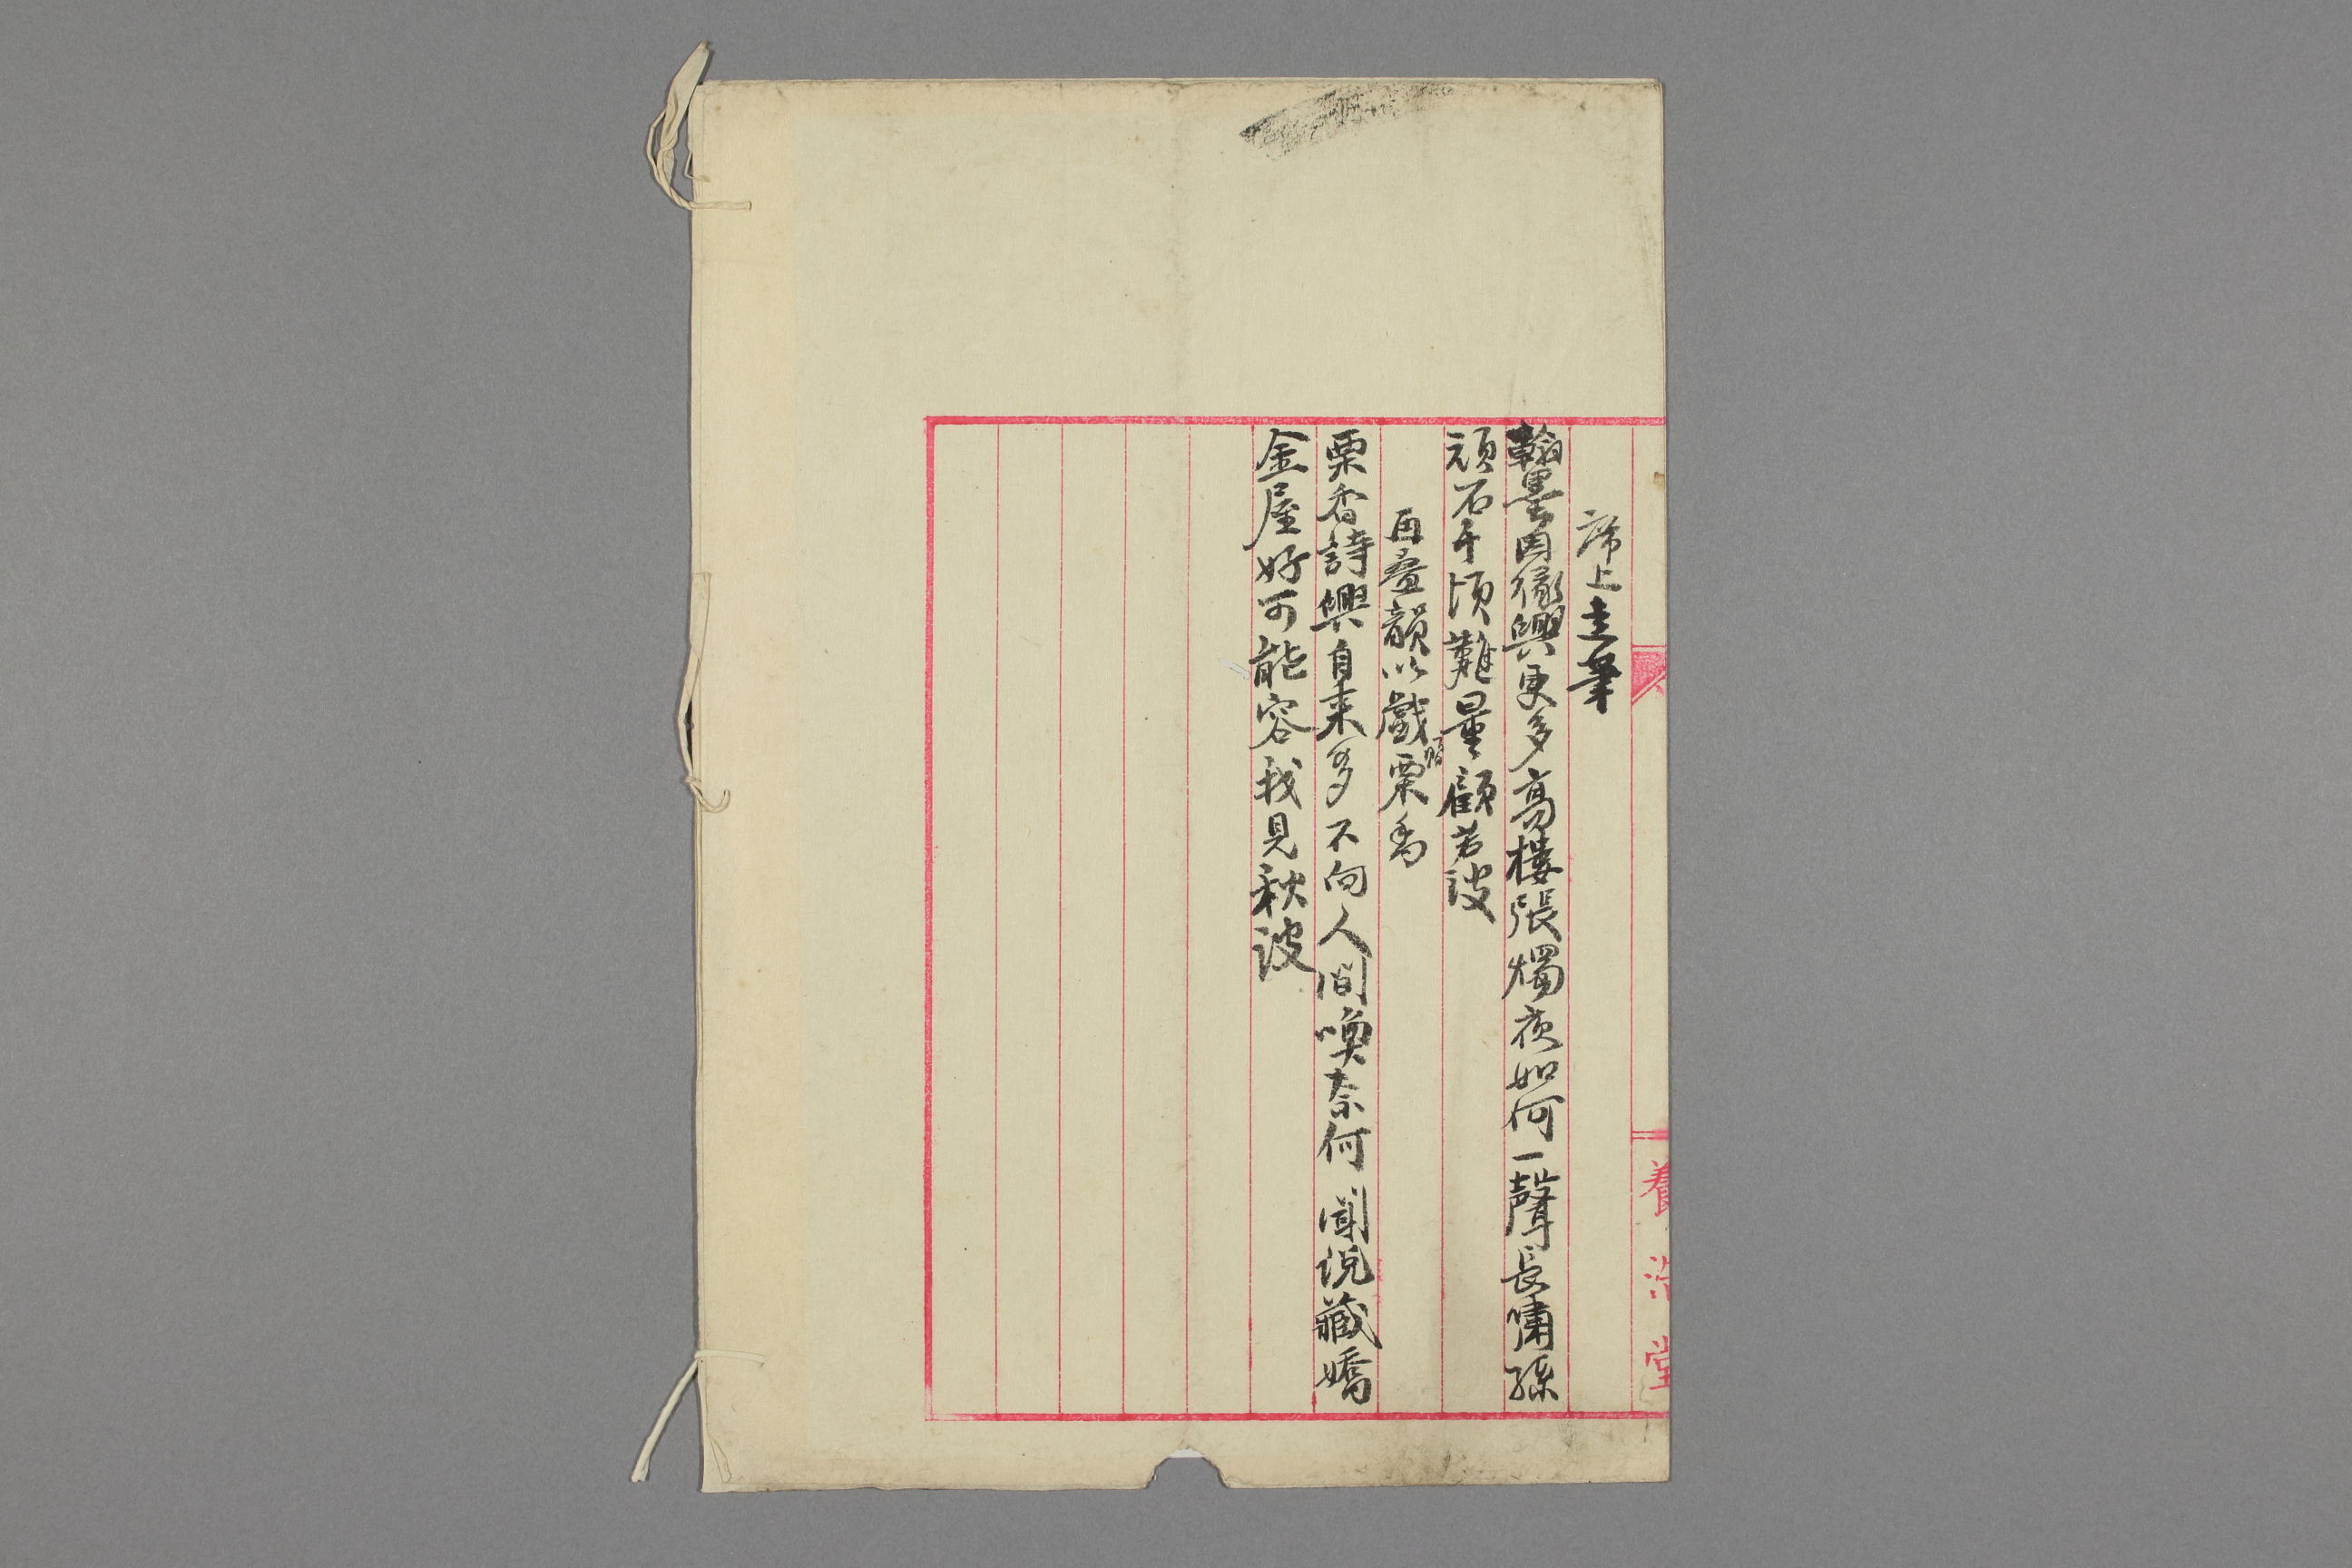 養浩堂
席上走筆
翰墨因緣興更多高樓張燭夜如何一聲長嘯孫
頑石千頃難量顧若波
再疊韻以戲贈栗香
栗香詩興自来多不向人間喚奈何聞説藏嬌
金屋好可能容我見秋波